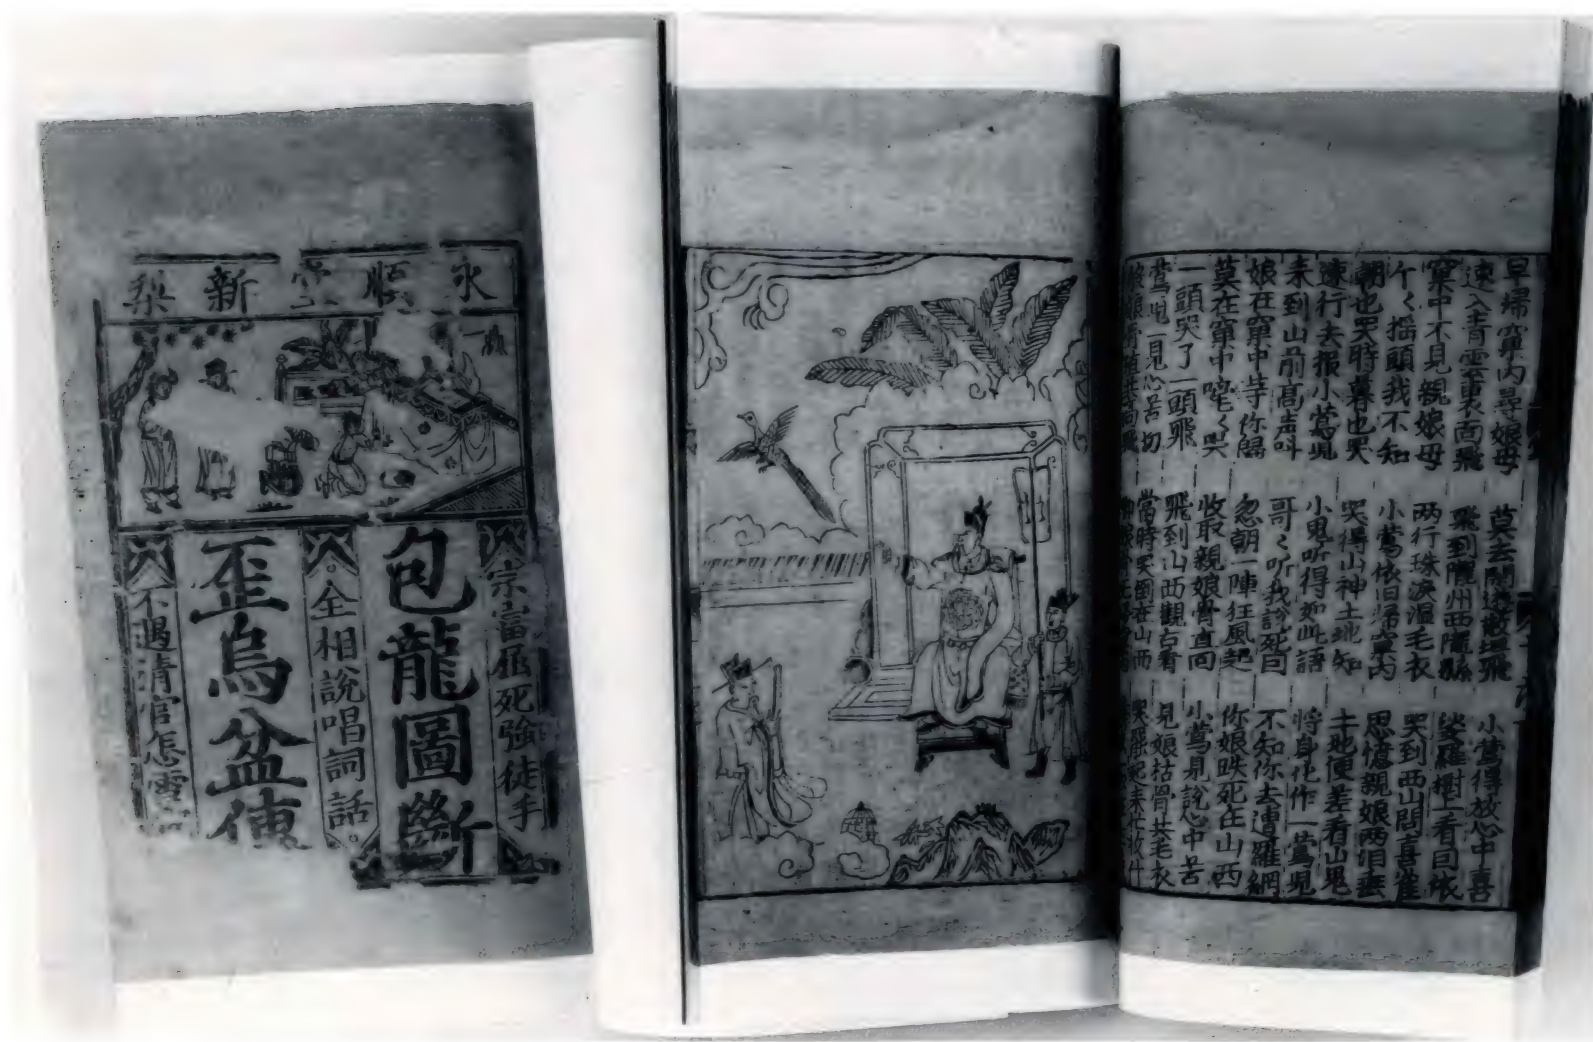 永順堂新梨
宗富屈死強徒手
包龍圖斷
全相說唱詞話
歪烏盆傳
不遇清官怎雪
早歸窠内尋娘母 莫去閑遊散誕飛 小鶯得放心中喜
速入青雲裏面飛 飛到隴州西隴縣 娑羅樹上看曰依
窠中不見親娘母 两行珠淚濕毛衣 哭到西山問喜雀
个〻搖頭我不知 小鶯依旧歸窠内 思憶親娘两泪垂
朝也哭時暮也哭 哭得山神土地知 土地便差看山鬼
速行去报小鶯児 小鬼听得如此語 将身化作一鶯児
来到山前髙声叫 哥〻听我説死曰 不知你去遭羅網
娘在窠中等你歸 忽朝一陣狂風起 你娘跌死在山西
莫在窠中啼〻哭 收取親娘骨直回 小鶯見説心中苦
一頭哭了一頭飛 飛到山西觀占看 見娘枯骨共毛衣
鶯児一見心苦切 當時哭倒在山西